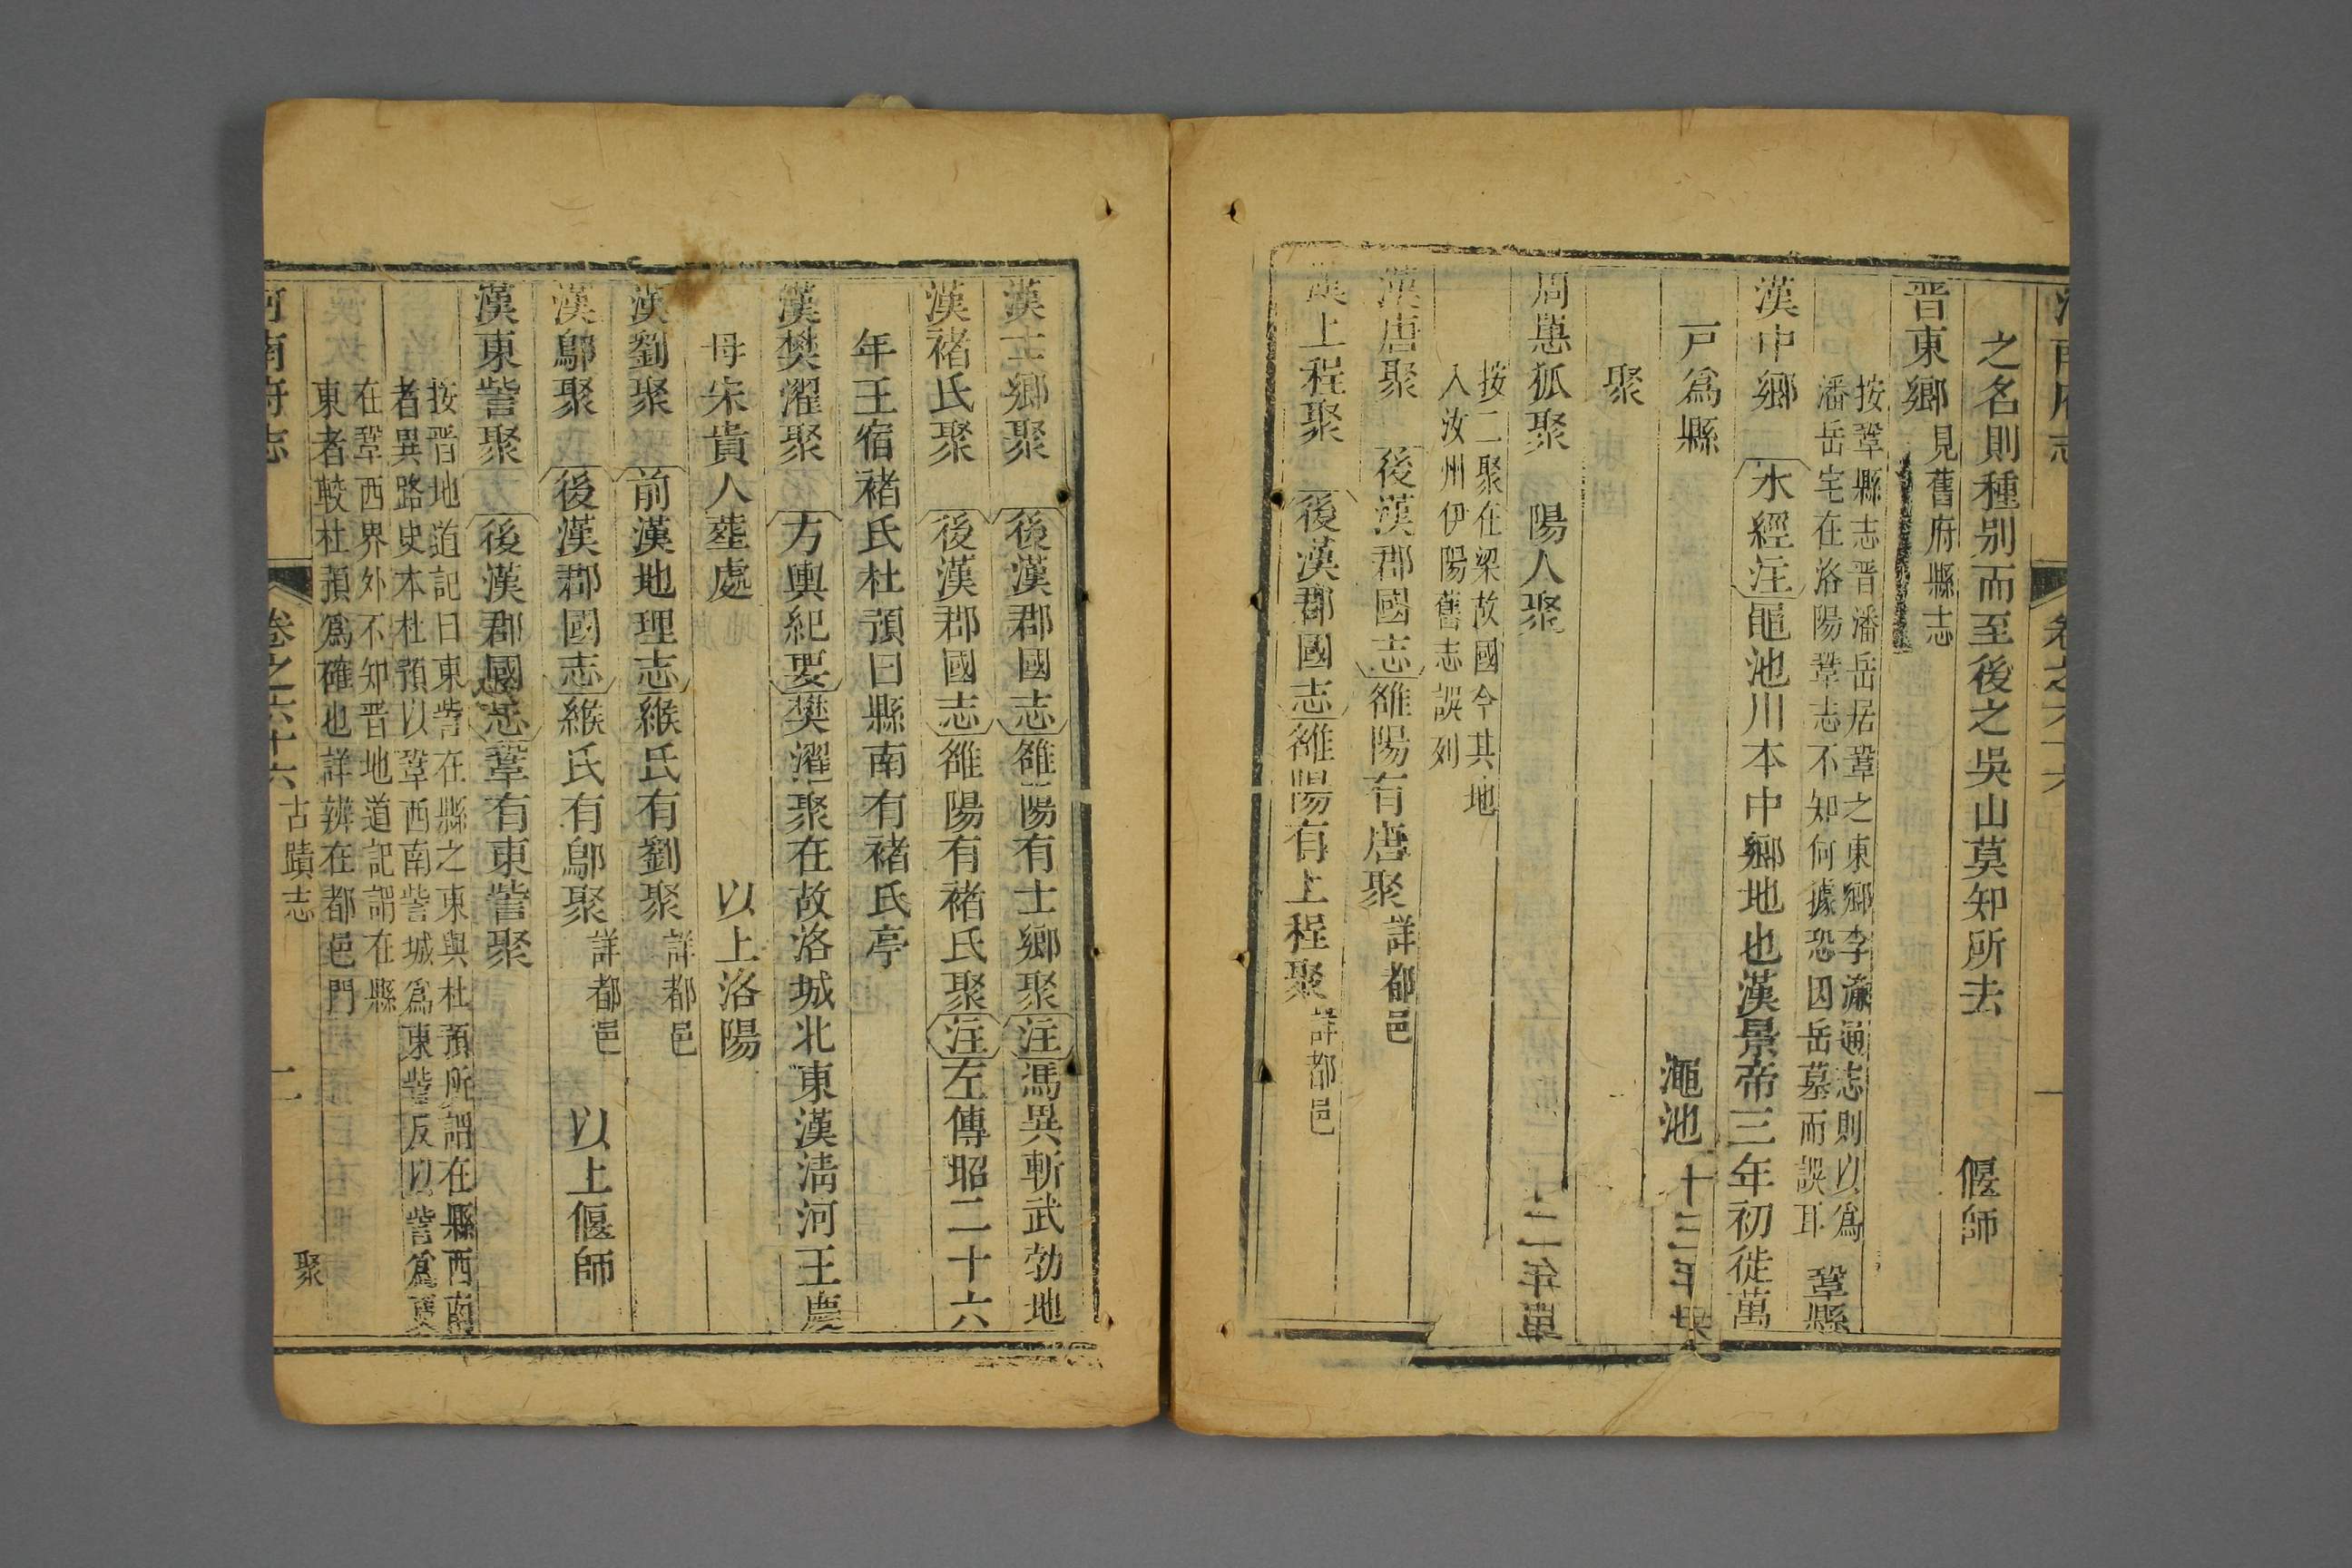 之名則種别而至後之吳山莫知所去 偃師
晋東鄉 見舊府縣志
按鞏縣志晋潘岳居鞏之東鄉李濂通志則以爲
潘岳宅在洛陽鞏志不知何據恐因岳墓而誤耳 鞏縣
漢中鄉 水經注黽池川本中鄉地也漢景帝三年初徙萬
戸爲縣 澠池
聚
周𢠸狐聚 陽人聚
按二聚在梁故國今其地
入汝州伊陽舊志誤列
漢唐聚 後漢郡國志雒陽有唐聚 詳都邑
漢上程聚 後漢郡國志雒陽有上程聚 詳都邑
漢士鄉聚 後漢郡國志雒陽有士鄉聚注馮異斬武勃地
漢褚氏聚 後漢郡國志雒陽有褚氏聚注左傳昭二十六
年王宿褚氏杜預曰縣南有褚氏亭
漢樊濯聚 方輿紀要樊濯聚在故洛城北東漢淸河王慶
母宋貴人葬處 以上洛陽
漢劉聚 前漢地理志緱氏有劉聚 詳都邑
漢鄔聚 後漢郡國志緱氏有鄔聚 詳都邑 以上偃師
漢東訾聚 後漢郡國志鞏有東訾聚
按晋地道記曰東訾在縣之東與杜預所謂在縣西南
者異路史本杜預以鞏西南訾城爲東訾反以訾爲
在鞏西界外不知晋地道記謂在縣
東者較杜預爲確也詳辨在都邑門
河南府志 卷之六十六 古蹟志 二 聚